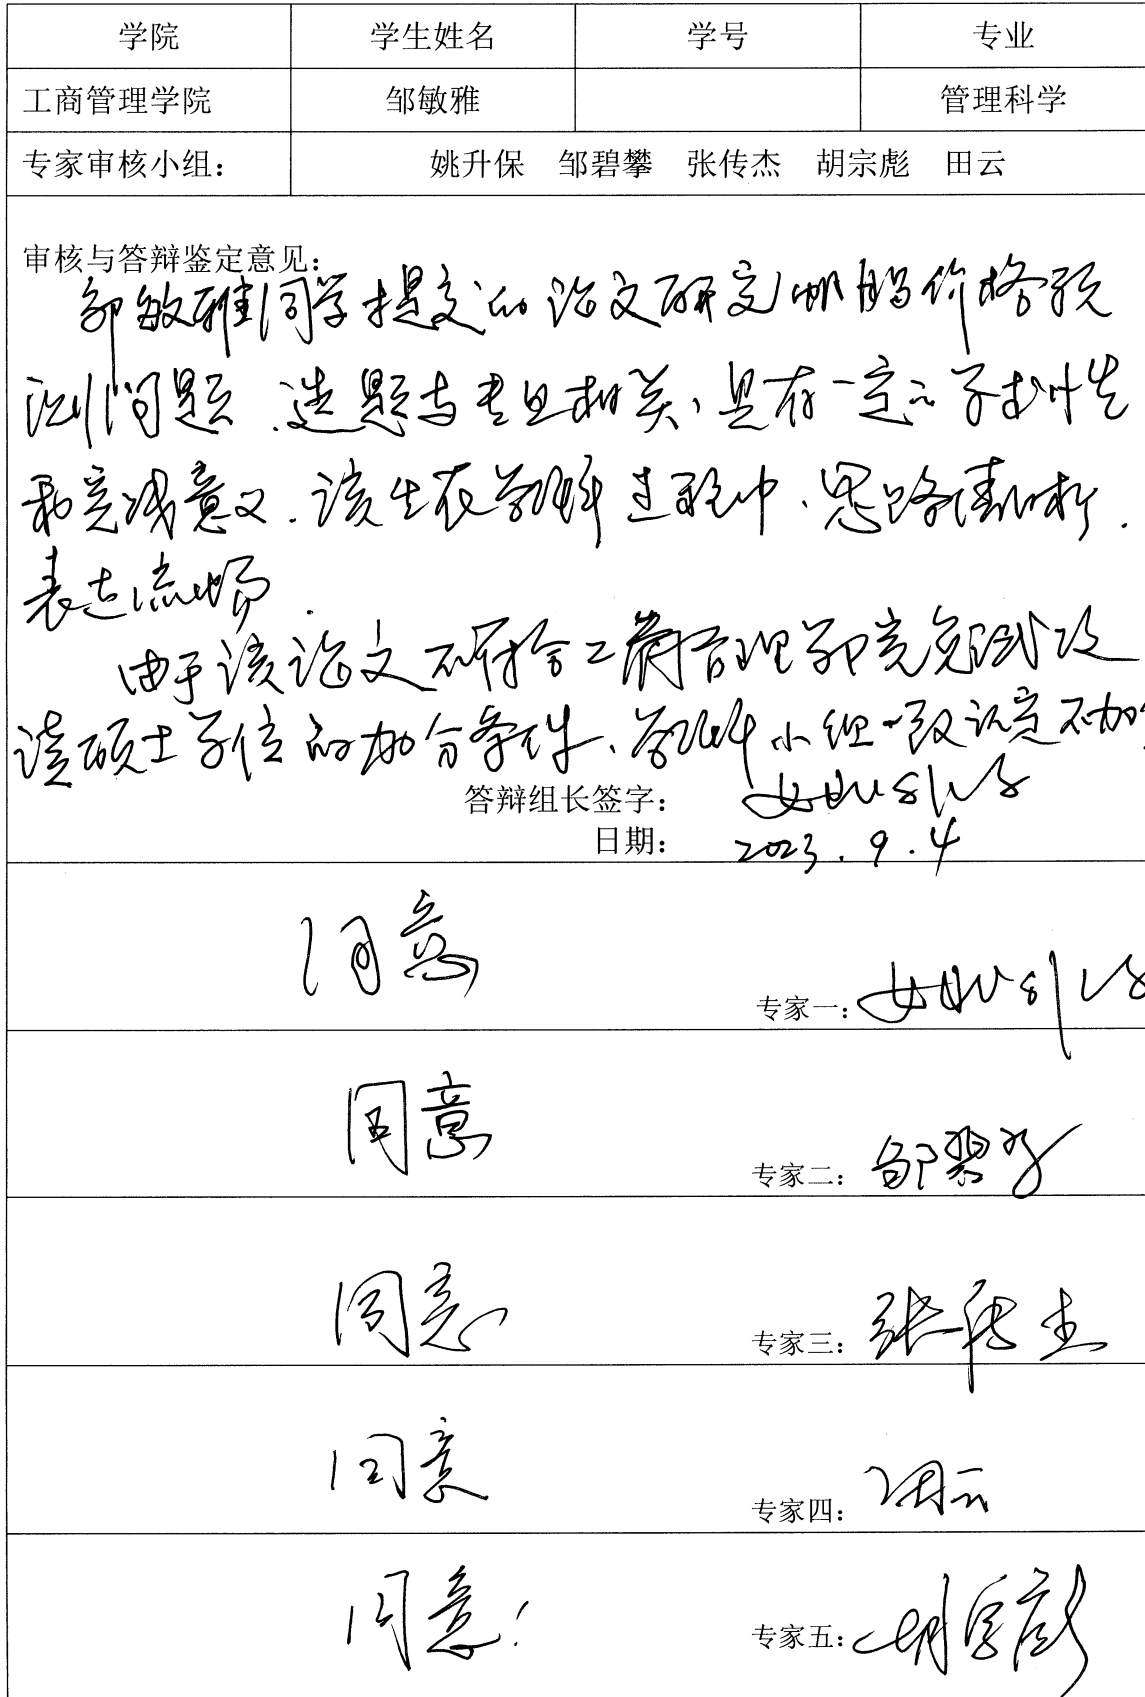 学院 学生姓名 学号 专业
工商管理学院 邹敏雅 管理科学
专家审核小组： 姚升保 邹碧攀 张传杰 胡宗彪 田云
审核与答辩鉴定意见：
邹敏雅同学提交的论文研究价格预
测问题，选题与专业相关，具有一定的学术性
和实践意义。该生在答辩过程中，思路清晰，
表达流畅。
由于该论文不符合工商管理学院免试攻
读硕士学位的加分条件，答辩小组一致认定不加
答辩组长签字： 姚升保
日期： 2023.9.4
同意
专家一： 姚升保
同意
专家二： 邹碧攀
同意
专家三： 张传杰
同意
专家四： 田云
同意！
专家五： 胡宗彪